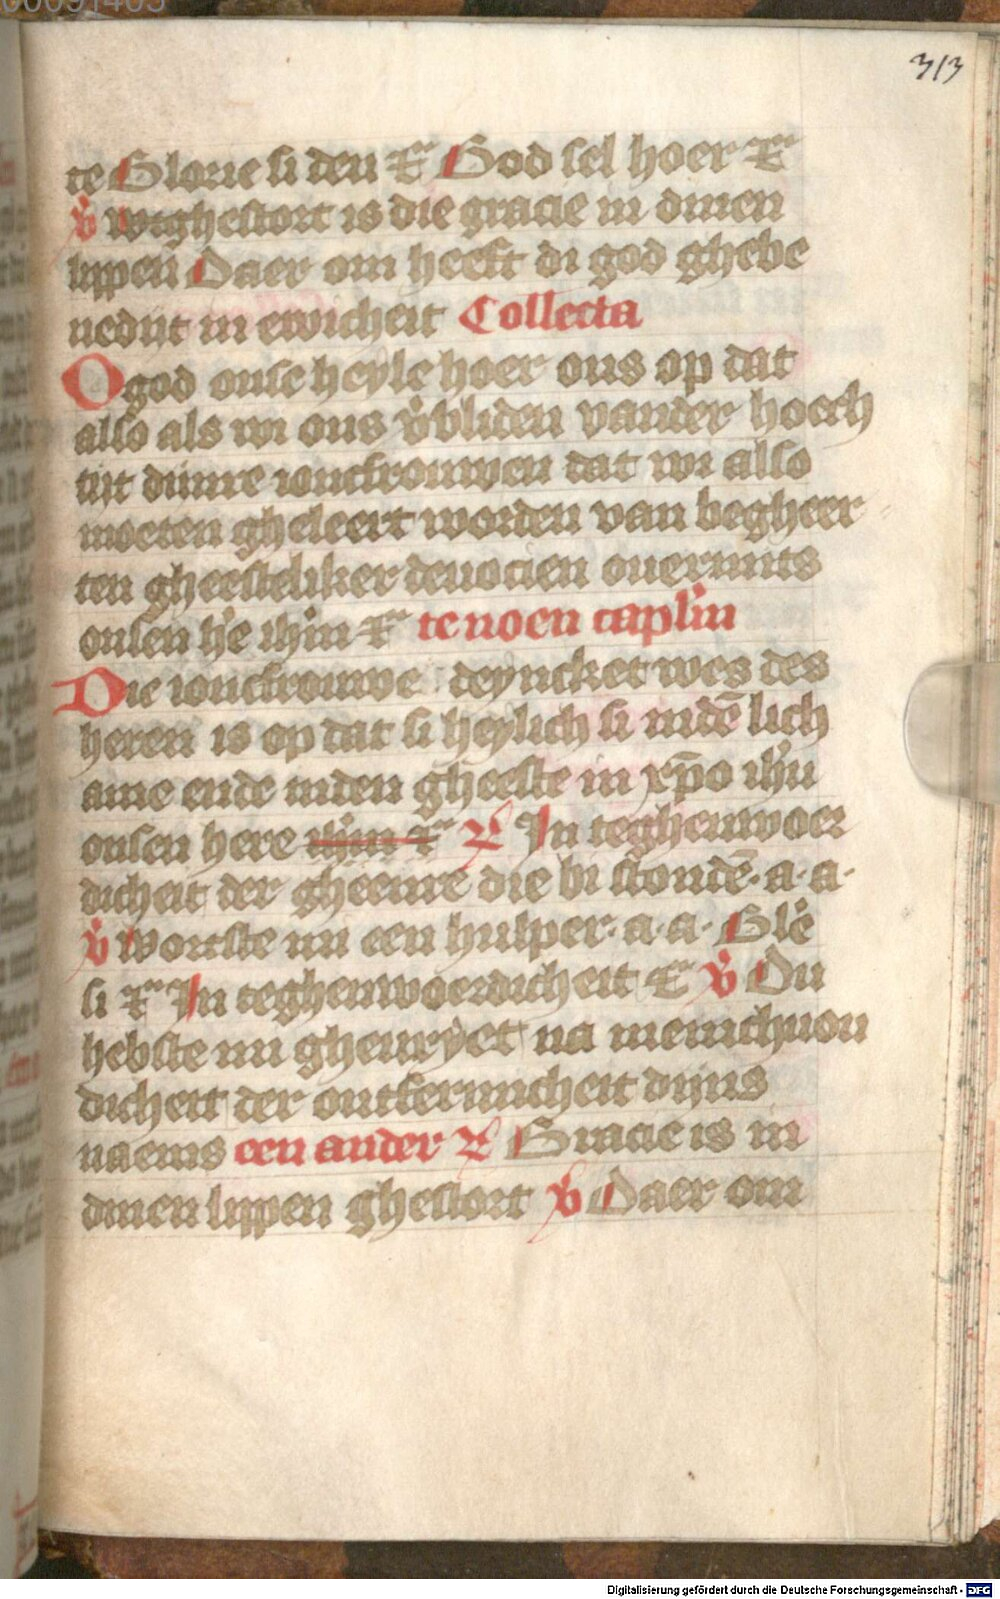 00091403
313
te Glorie si den &c God sel hoer &c
v̓ wtghestort is die gracie in dinen
lippen Daer om heeft di god ghebe
nedijt in ewicheit Collecta
O god onse heyle hoer ons op dat
also als wi ons v̓bliden vander hoech
tijt dijnre ioncfrouwen dat wi also
moeten gheleert worden van begheer
ten gheesteliker deuocien ouermits
onsen h̓e ihm̓ &c te noen capl̓m
Die ioncfrouwe deyncket wes des
heren is op dat si heylich si indē lich
ame ende inden gheeste in xp̄o ihū
onsen here ihm̓ &c R̷ In teghenwoer
dicheit der gheenre die bi stondē· a· a·
v̓ Wortste mi een hulper· a· a· Glē
si &c In teghenwoerdicheit &c v̓ Du
hebste mi gheuryet na menichuou
dicheit der ontfermicheit dijns
naems een ander R̷ Gracie is in
dinen lippen ghestort v̓ Daer om
Digitalisierung gefördert durch die Deutsche Forschungsgemeinschaft - DFG